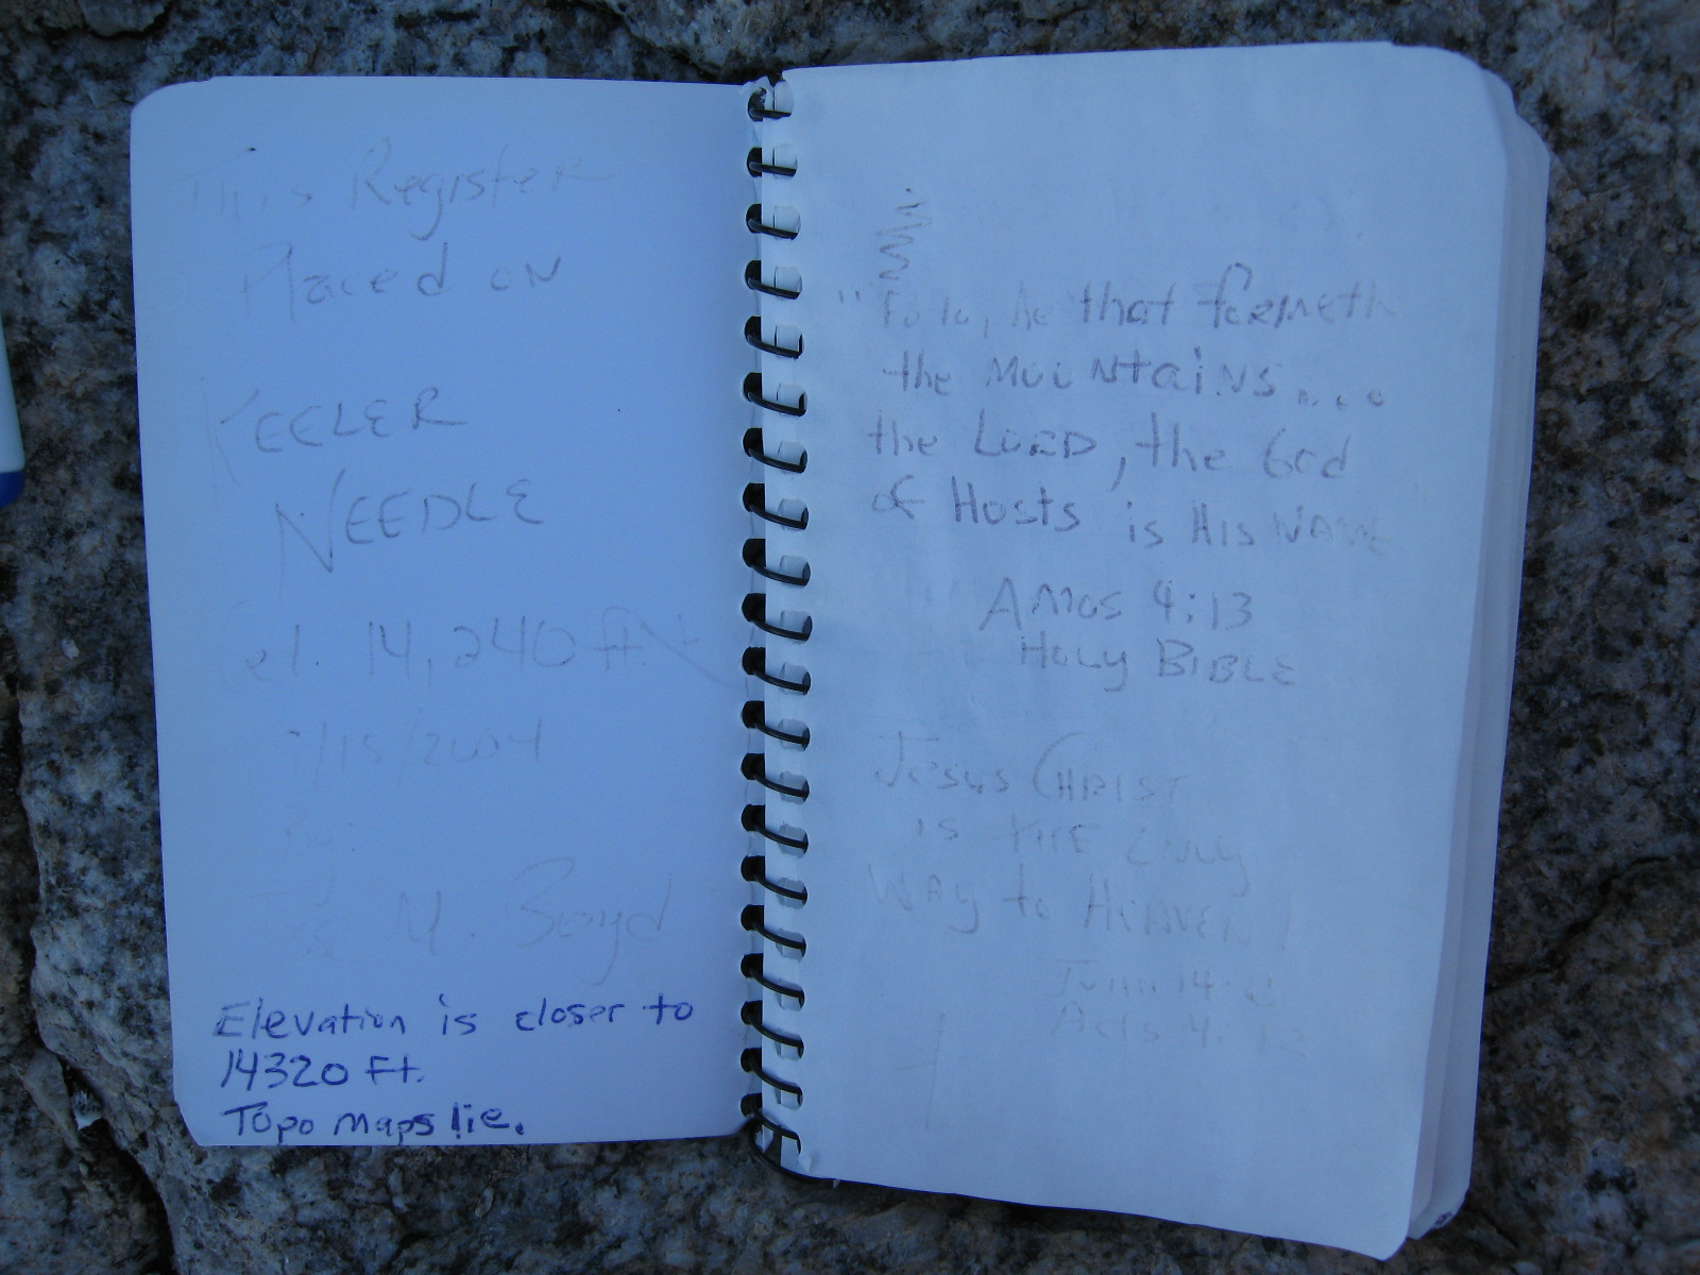 This Register
Placed on
KEELER
NEEDLE
el. 14,240 ft.
/15/2004
By:
M. Boyd
Elevation is closer to
14320 Ft.
Topo maps lie.
" lo, he that formeth
the Mountains....
the LORD, the God
of Hosts is His NAME
Amos 4:13
Holy BIBLE
Jesus CHRIST
is THE ONLY
WAY to HEAVEN!
John 14:
Acts 4:12